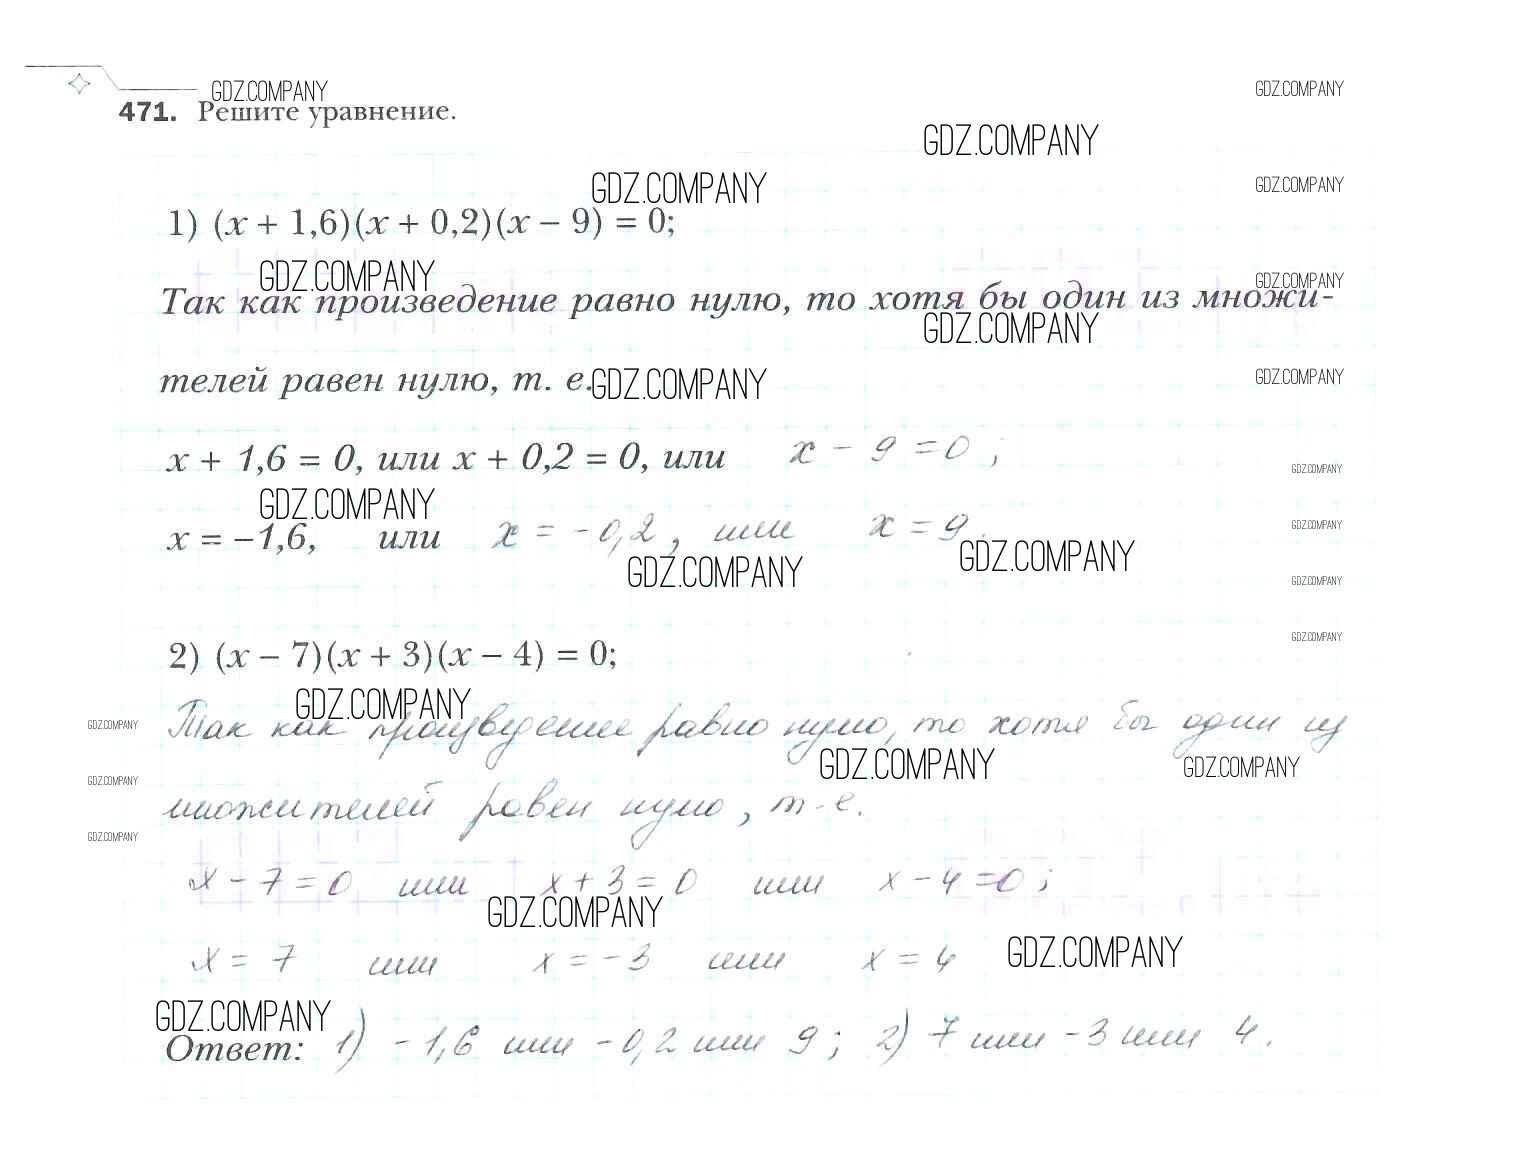 GDZ.COMPANY
GDZ.COMPANY
471. Решите уравнение.
GDZ.COMPANY
GDZ.COMPANY
GDZ.COMPANY
1) (x + 1,6)(x + 0,2)(x − 9) = 0;
GDZ.COMPANY
GDZ.COMPANY
Так как произведение равно нулю, то хотя бы один из множи-
GDZ.COMPANY
телей равен нулю, т. е.
GDZ.COMPANY
GDZ.COMPANY
x + 1,6 = 0, или x + 0,2 = 0, или x − 9 = 0;
GDZ.COMPANY
GDZ.COMPANY
GDZ.COMPANY
x = −1,6, или x = −0,2, или x = 9.
GDZ.COMPANY
GDZ.COMPANY
GDZ.COMPANY
GDZ.COMPANY
2) (x − 7)(x + 3)(x − 4) = 0;
GDZ.COMPANY
GDZ.COMPANY
Так как произведение равно нулю, то хотя бы один из
GDZ.COMPANY
GDZ.COMPANY
GDZ.COMPANY
множителей равен нулю, т.е.
GDZ.COMPANY
x − 7 = 0 или x + 3 = 0 или x − 4 = 0;
GDZ.COMPANY
x = 7 или x = −3 или x = 4
GDZ.COMPANY
GDZ.COMPANY
Ответ: 1) −1,6 или −0,2 или 9; 2) 7 или −3 или 4.